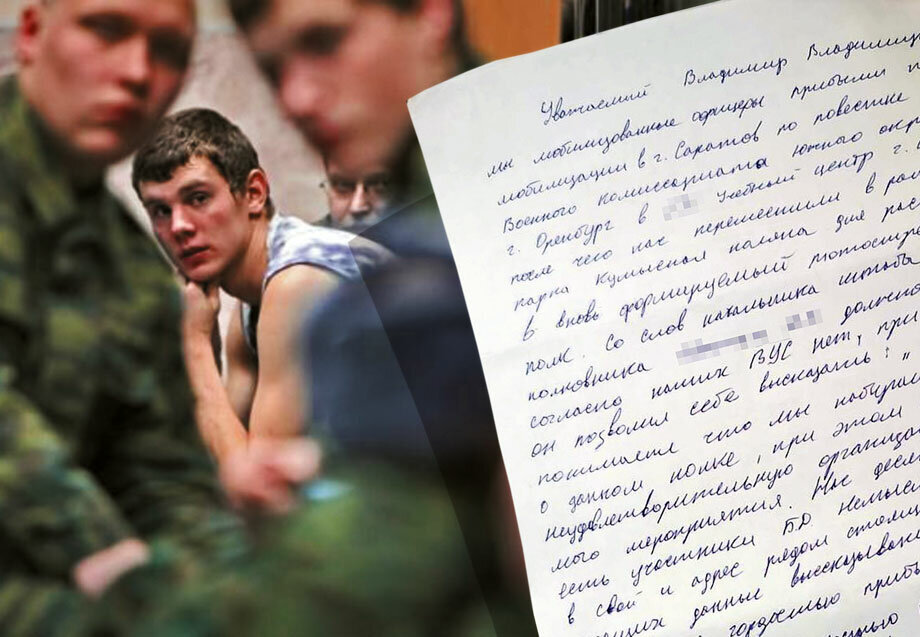 Уважаемый Владимир Владимир
мы мобилизованные офицеры прибыли
мобилизации в г. Саратов по повестке
Военного комиссариата Южного окр
г. Оренбург в Учебный центр г.
после чего нас переместили в рай
парка Кумысная поляна для рас
в вновь формируемый мотостре
полк. Со слов начальника штаба
полковника должно
согласно наших ВУС нет, при
он позволил себе высказать: "
понимаете что мы набирали
о данном полке, при этом
неудовлетворительную организац
мого мероприятия. Нас
есть участники Б.Д.
в свой и адрес рядом стоящ
данные высказывани
гордостью прибы